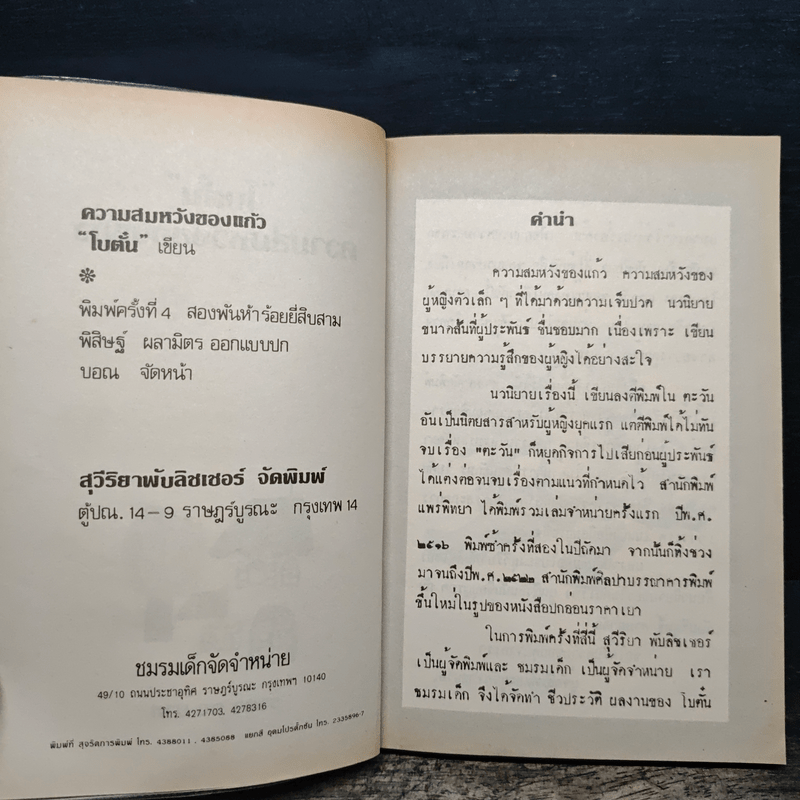 ความสมหวังของแก้ว
"โบตั๋น" เขียน
พิมพ์ครั้งที่ 4 สองพันห้าร้อยยี่สิบสาม
พิสิษฐ์ ผลามิตร ออกแบบปก
บอณ จัดหน้า
สุวีริยาพับลิชเชอร์ จัดพิมพ์
ตู้ปณ. 14-9 ราษฎร์บูรณะ กรุงเทพ 14
ชมรมเด็กจัดจำหน่าย
49/10 ถนนประชาอุทิศ ราษฎร์บูรณะ กรุงเทพฯ 10140
โทร. 4271703, 4278316
พิมพ์ที่ สุจริตการพิมพ์ โทร. 4388011, 4385088 แยกสี อุดมโปรดั๊กชั่น โทร. 2335896-7
คำนำ
ความสมหวังของแก้ว ความสมหวังของ
ผู้หญิงตัวเล็ก ๆ ที่ได้มาด้วยความเจ็บปวด นวนิยาย
ขนาดสั้นที่ผู้ประพันธ์ ชื่นชอบมาก เนื่องเพราะ เขียน
บรรยายความรู้สึกของผู้หญิงได้อย่างสะใจ
นวนิยายเรื่องนี้ เขียนลงตีพิมพ์ใน ตะวัน
อันเป็นนิตยสารสำหรับผู้หญิงยุคแรก แต่ตีพิมพ์ได้ไม่ทัน
จบเรื่อง "ตะวัน" ก็หยุดกิจการไปเสียก่อนผู้ประพันธ์
ได้แต่งต่อจนจบเรื่องตามแนวที่กำหนดไว้ สำนักพิมพ์
แพร่พิทยา ได้พิมพ์รวมเล่มจำหน่ายครั้งแรก ปีพ.ศ.
๒๕๑๖ พิมพ์ซ้ำครั้งที่สองในปีถัดมา จากนั้นก็ทิ้งช่วง
มาจนถึงปีพ.ศ.๒๕๒๒ สำนักพิมพ์ศิลปาบรรณาคารพิมพ์
ขึ้นใหม่ในรูปของหนังสือปกอ่อนราคาเยา
ในการพิมพ์ครั้งที่สี่นี้ สุวีริยา พับลิชเชอร์
เป็นผู้จัดพิมพ์และ ชมรมเด็ก เป็นผู้จัดจำหน่าย เรา
ชมรมเด็ก จึงได้จัดทำ ชีวประวัติ ผลงานของ โบตั๋น